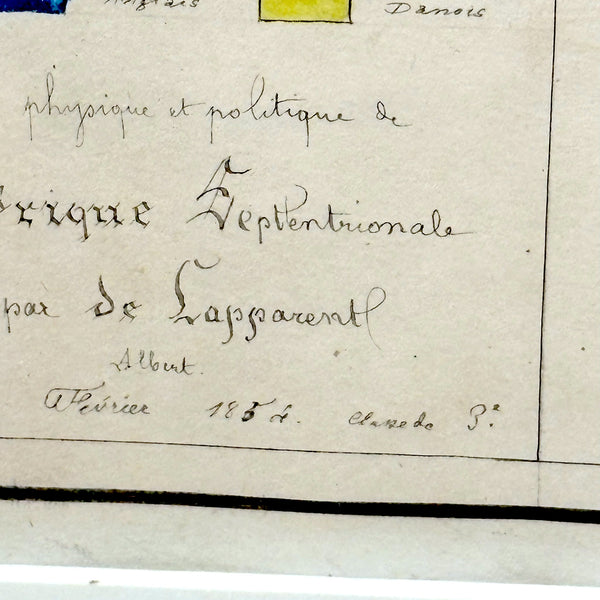 Anglais Danois
physique et politique de
rique Septentrionale
par de Lapparent
Albert.
Février 1854. Classe de 3e.